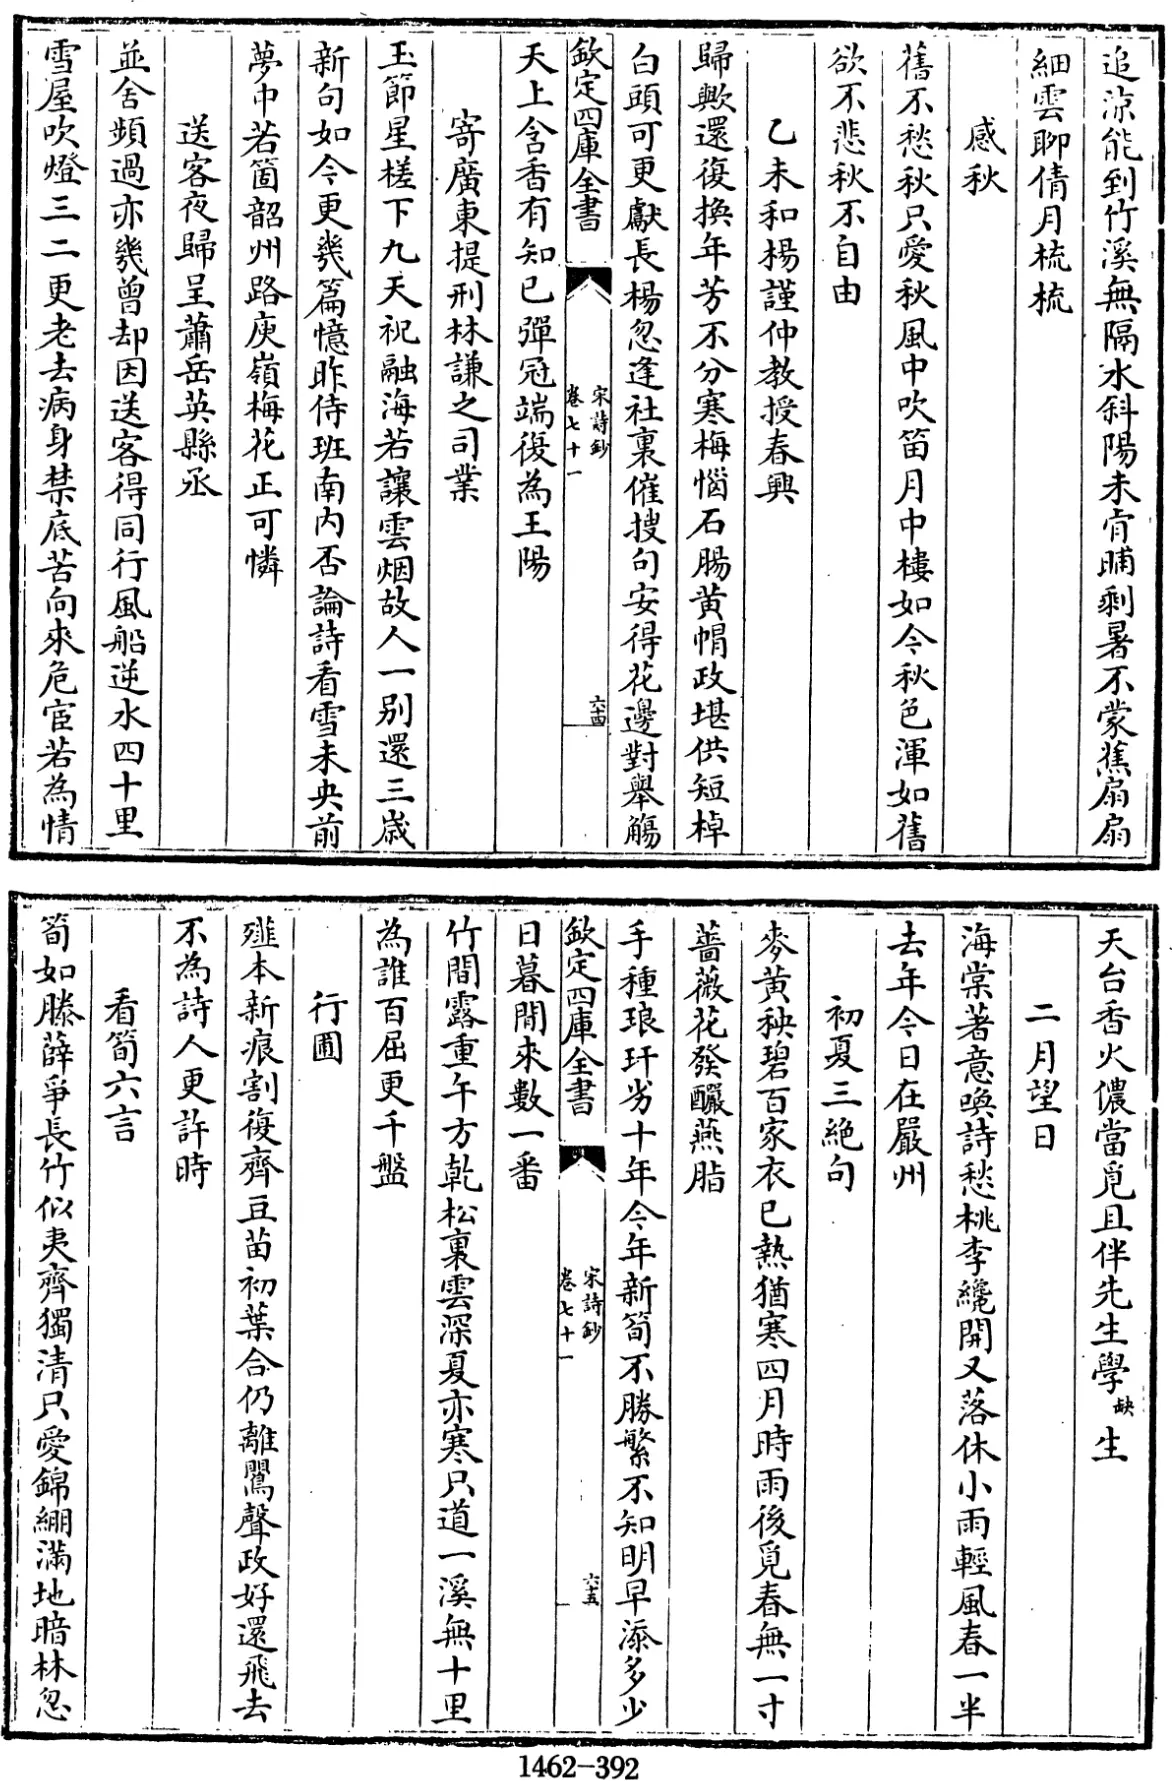 追涼能到竹溪無隔水斜陽未肯晡剩暑不蒙蕉扇扇
細雲聊倩月梳梳
感秋
舊不愁秋只愛秋風中吹笛月中樓如今秋色渾如舊
欲不悲秋不自由
乙未和楊謹仲教授春興
歸歟還復換年芳不分寒梅惱石腸黄帽政堪供短棹
白頭可更獻長楊忽逢社裏催搜句安得花邊對舉觴
欽定四庫全書
宋詩鈔
卷七十一
六十四
天上含香有知已彈冠端復為王陽
寄廣東提刑林謙之司業
玉節星槎下九天祝融海若讓雲烟故人一别還三歲
新句如今更幾篇憶昨侍班南内否論詩看雪未央前
夢中若箇韶州路庾嶺梅花正可憐
送客夜歸呈蕭岳英縣丞
並舍頻過亦幾曾却因送客得同行風船逆水四十里
雪屋吹燈三二更老去病身禁底苦向來危宦若為情
天台香火儂當覓且伴先生學缺生
二月望日
海棠著意喚詩愁桃李纔開又落休小雨輕風春一半
去年今日在嚴州
初夏三絶句
麥黄秧碧百家衣已熱猶寒四月時雨後覓春無一寸
薔薇花發釅燕脂
手種琅玕劣十年今年新筍不勝繁不知明早添多少
欽定四庫全書
宋詩鈔
卷七十一
六十五
日暮閒來數一番
竹間露重午方乾松裏雲深夏亦寒只道一溪無十里
為誰百屈更千盤
行圃
薤本新痕割復齊豆苗初葉合仍離鸎聲政好還飛去
不為詩人更許時
看筍六言
筍如滕薛爭長竹似夷齊獨清只愛錦綳滿地暗林忽
1462-392